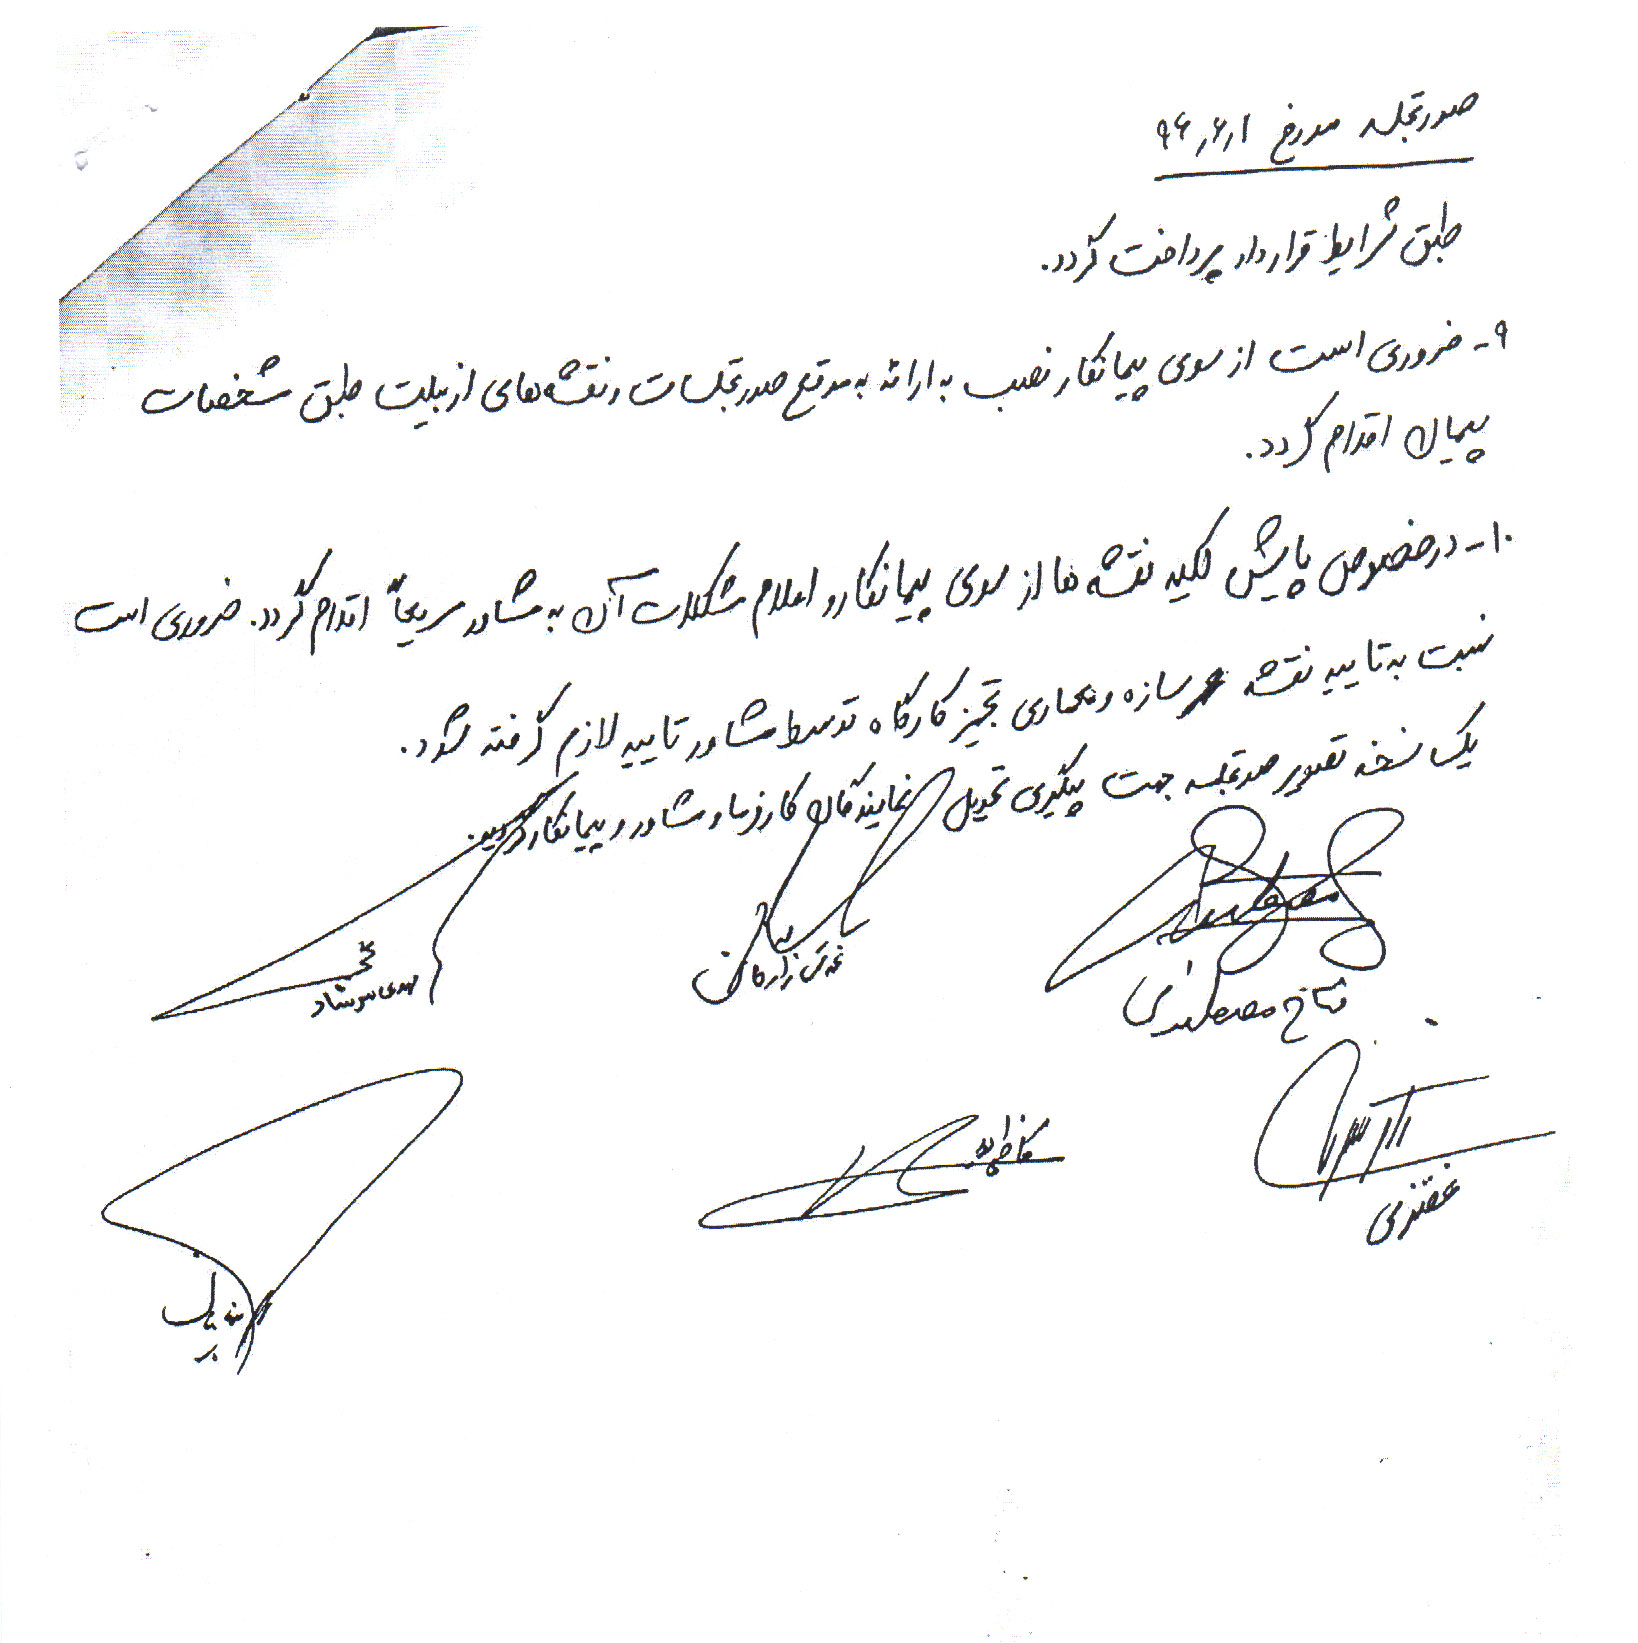 صورتجلسه مورخ ۹۶٫۶٫۱
طبق شرایط قرارداد پرداخت گردد.
۹- ضروری است از سوی پیمانکار نصب به ارائه به موقع صورتجلسات و نقشه های ازبیلت طبق مشخصات
پیمان اقدام گردد.
۱۰- در خصوص پایش کلیه نقشه ها از سوی پیمانکار و اعلام مشکلات آن به مشاور سریعاً اقدام گردد. ضروری است
نسبت به تایید نقشه سازه و معماری تجهیز کارگاه توسط مشاور تایید لازم گرفته شود.
یک نسخه تصویر صورتجلسه جهت پیگیری تحویل نمایندگان کارفرما و مشاور و پیمانکار گردید.
مهدی
فتاح
غضنفری